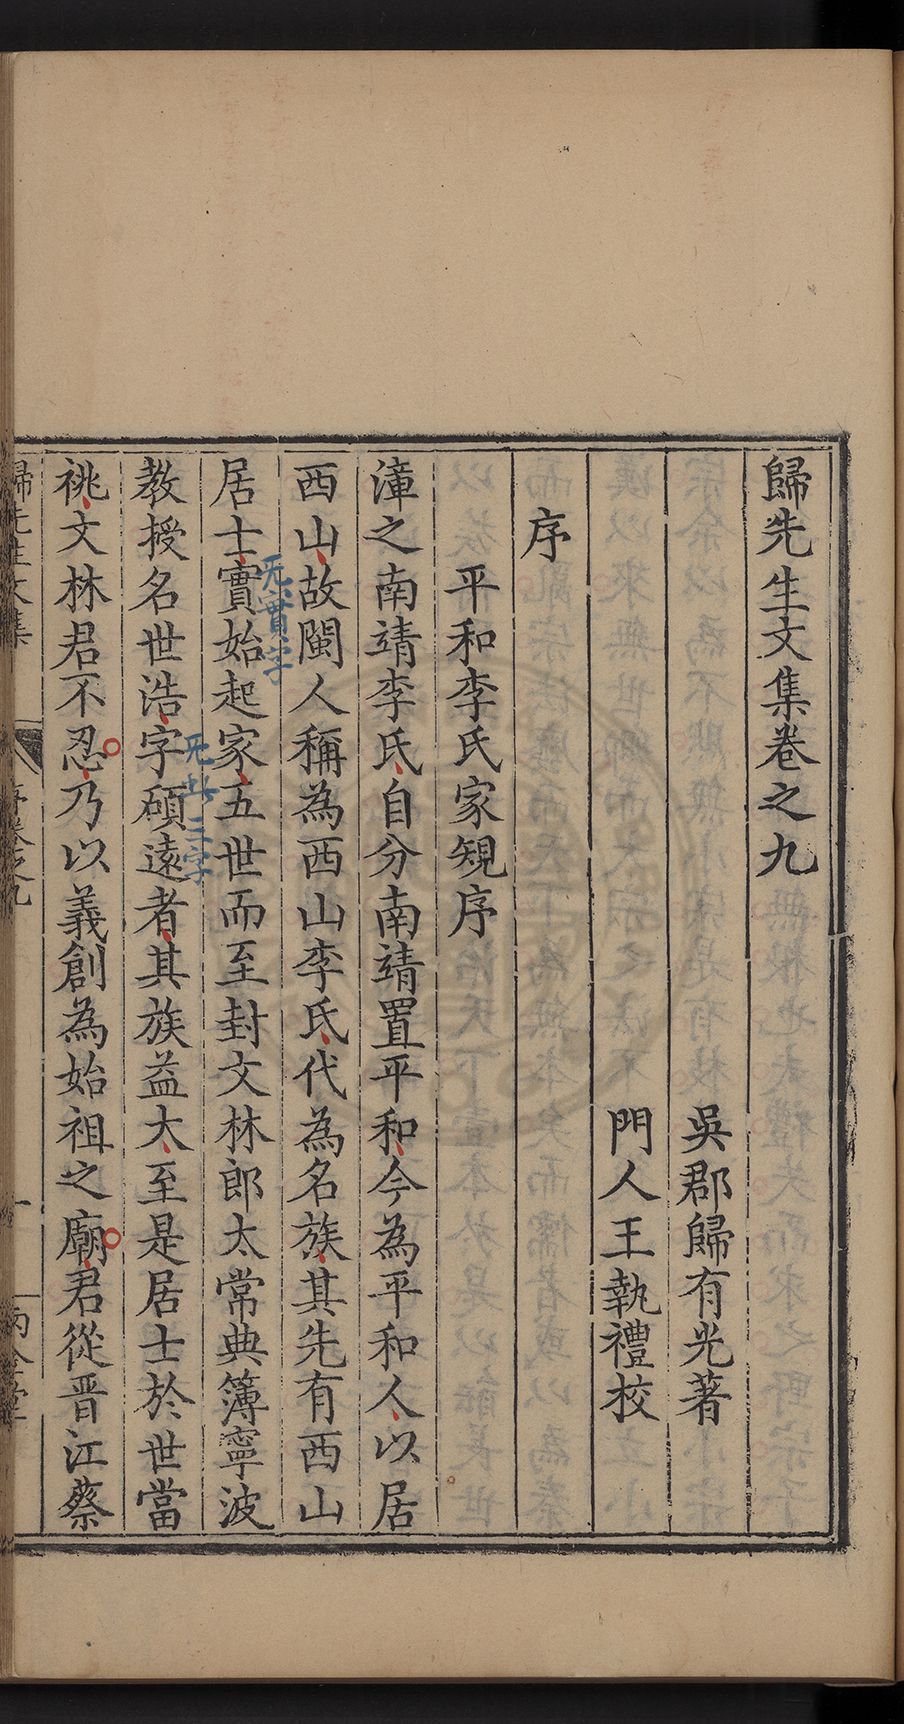 歸先生文集卷之九
吳郡歸有光著
門人王執禮校
序
平和李氏家規序
漳之南靖李氏自分南靖置平和今為平和人以居
西山故閩人稱為西山李氏代為名族其先有西山
居士實始起家五世而至封文林郎太常典簿寧波
无實字
教授名世浩字碩遠者其族益大至是居士於世當
无此三字
祧文林君不忍乃以義創為始祖之廟君從晋江蔡
歸先生文集
序卷之九
一